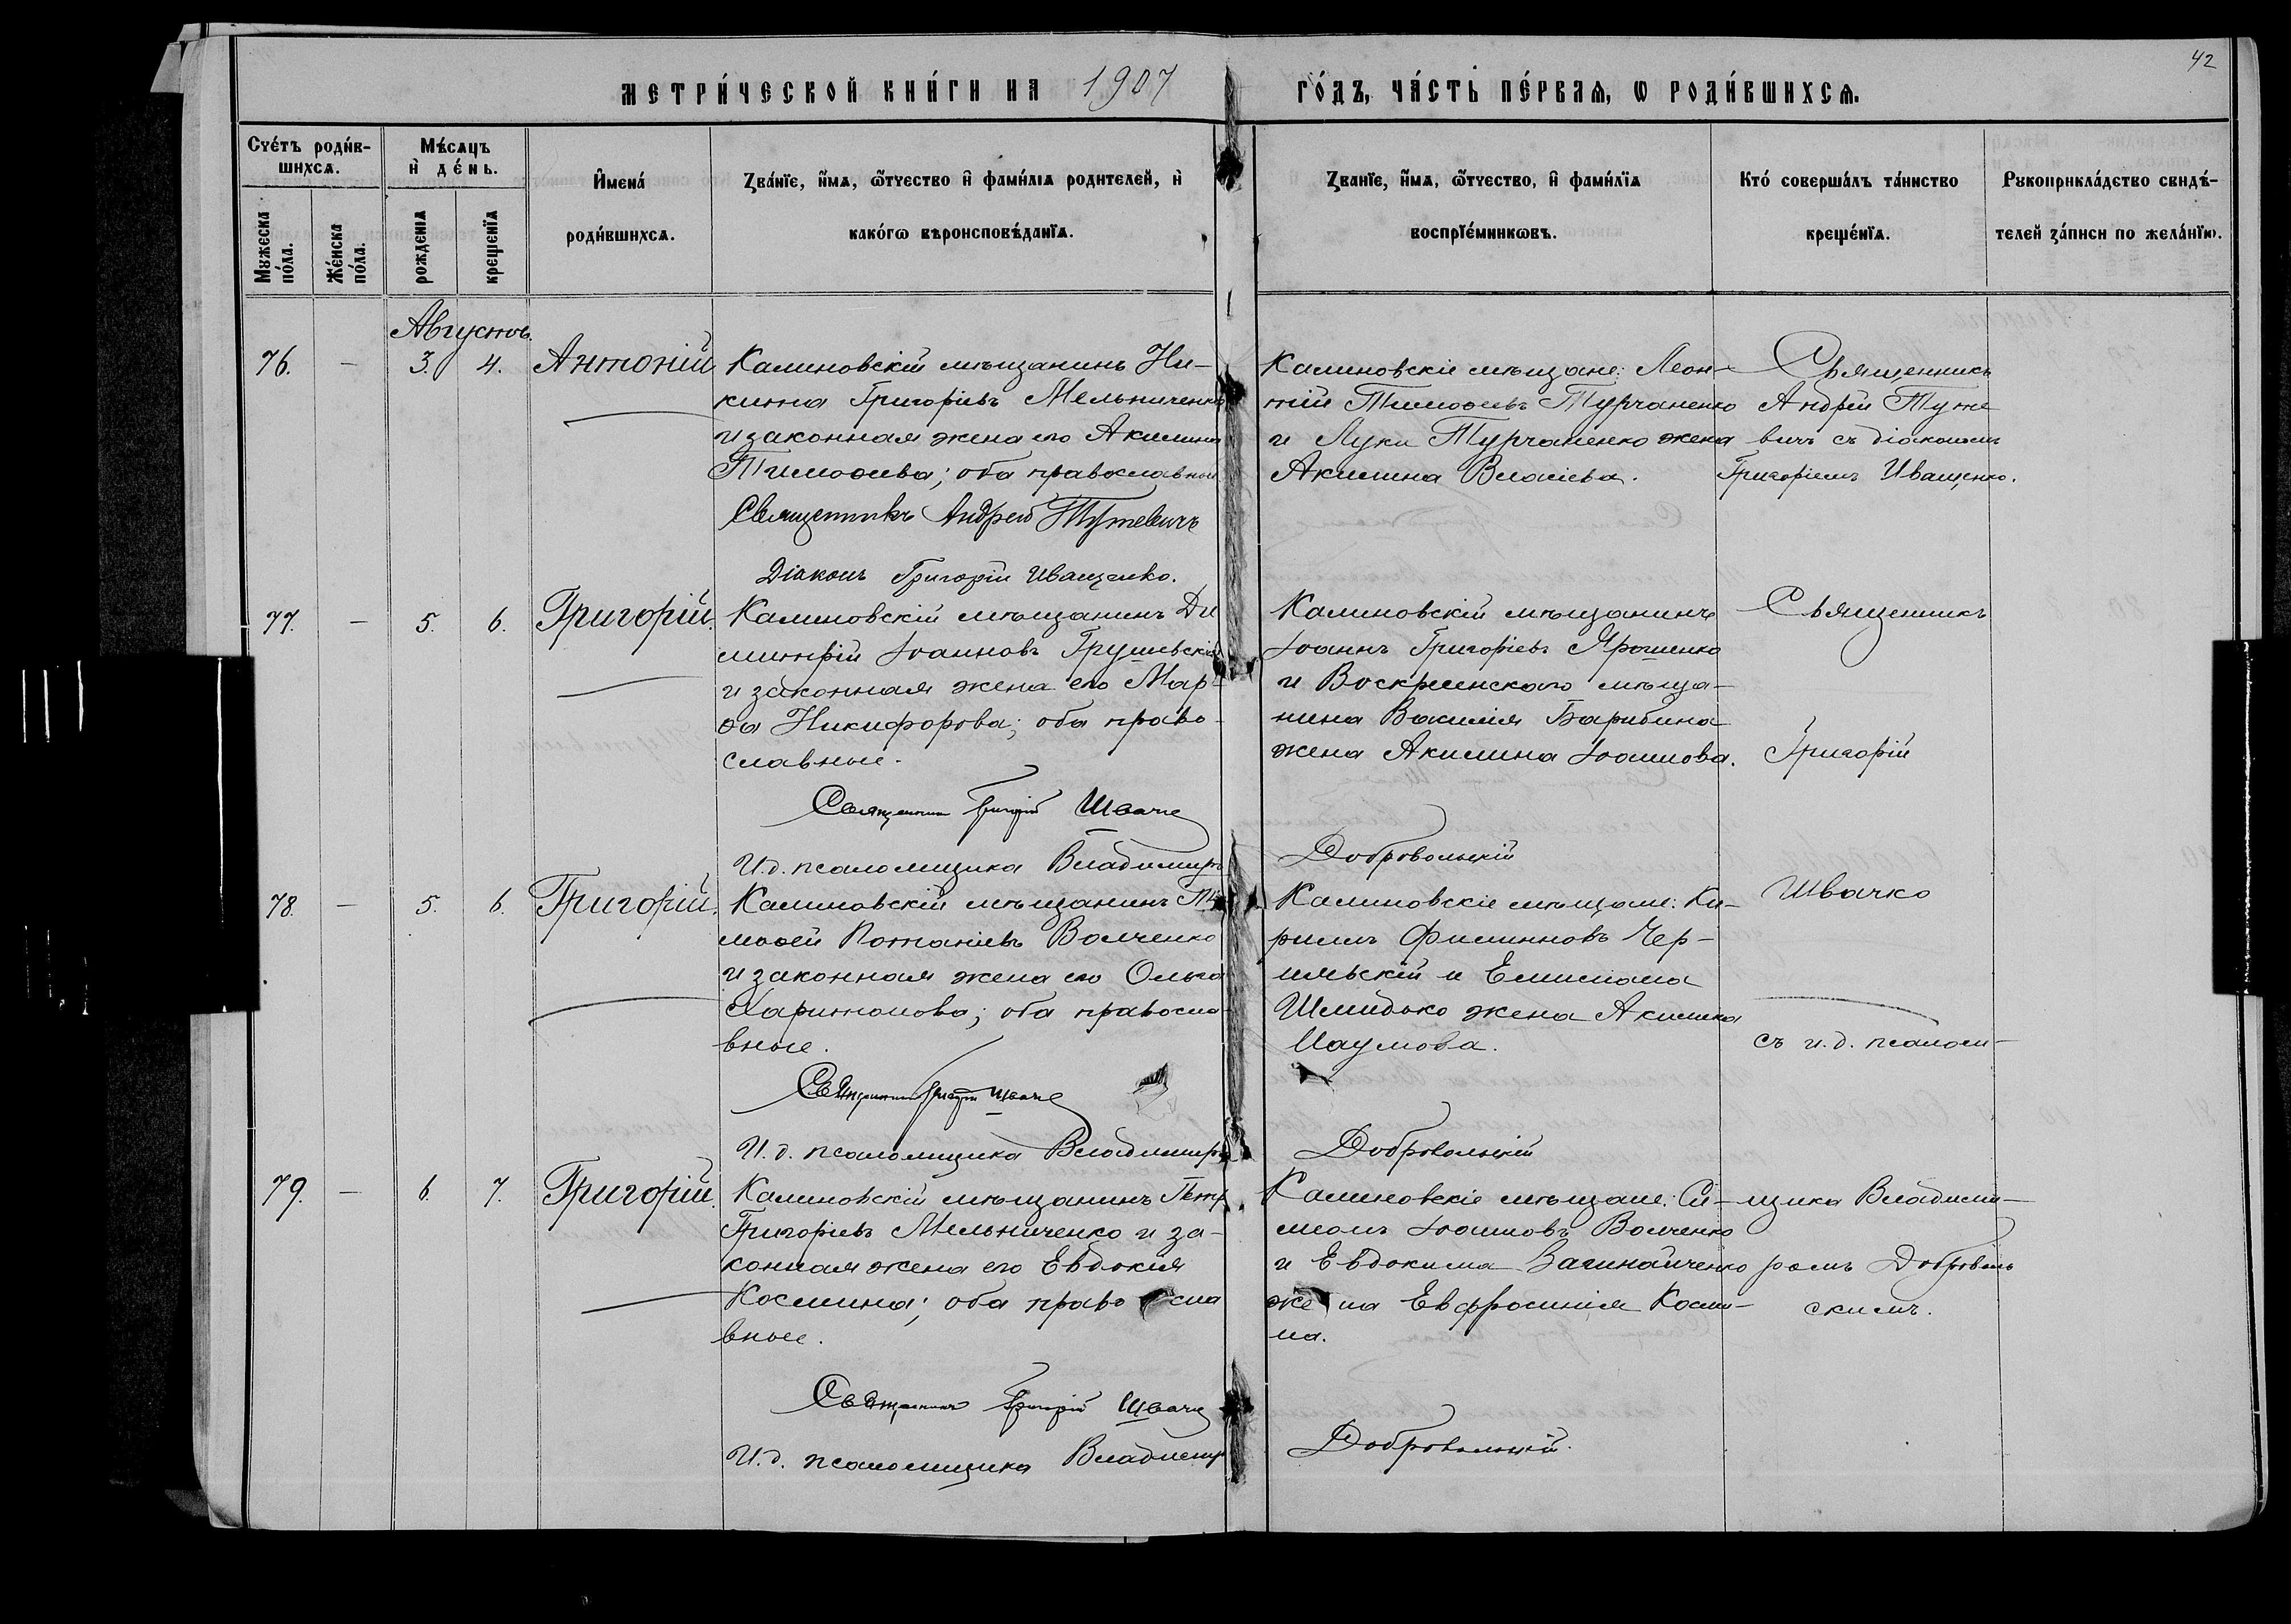 42
МЕТРИ́ЧЕСКОЙ КНИ́ГИ НА 1907 ГО́ДЪ, ЧА́СТЬ ПЕ́РВАѦ, Ѡ РОДИ́ВШИХСѦ.
Счéтъ роди́в-
шихсѧ.
Мꙋжеска
по́ла.
Же́нска
по́ла.
Мѣ́сѧцъ
и҆ де́нь.
рожденїѧ
крещенїѧ
И҆мена́
роди́вшихсѧ.
Зва́нїе, и҆́мѧ, ѻ҆́тчество и҆ фами́лїѧ родителей, и҆
како́гѡ вѣроисповѣ́данїѧ.
Званїе, и҆́мѧ, ѻ҆́тчество, и҆ фами́лїѧ
воспрїе́мникѡвъ.
Кто́ соверша́лъ та́инство
креще́нїѧ.
Рꙋкоприкла́дство свидѣ́-
телей за́писи по жела́нїю.
Августъ.
76. — 3. 4. Антоній
Калиновскій мѣщанинъ Ни-
кита Григоріевъ Мельниченко
и законная жена его Акилина
Тимоѳеева; оба православные
Священникъ Андрей Тутевичъ
Діаконъ Григорій Иващенко.
Калиновскіе мѣщане: Леон-
тій Тимоѳеевъ Турчаненко
и Луки Турчаненко жена
Акилина Власіева.
Священникъ
Андрей Туте
вичъ съ діакономъ
Григоріемъ Иващенко.
77. — 5. 6. Григорій.
Калиновскій мѣщанинъ Ди
митрій Іоанновъ Грушевскій
и законная жена его Мар-
ѳа Никифорова; оба право-
славные.
Священникъ Григорій Швачко
И.д. псаломщика Владимиръ Добровольскій
Калиновскій мѣщанинъ
Іоаннъ Григоріевъ Ярошенко
и Воскресенского мѣща-
нина Василія Барибина
жена Акилина Іоаннова.
Священникъ
Григорій
78. — 5. 6. Григорій.
Калиновскій мѣщанинъ Ти
моѳей Потапіевъ Волченко
и законная жена его Ольга
Харитонова; оба правосла-
вные.
Священникъ Григорій Швачко
И.д. псаломщика Владимиръ Добровольскій
Калиновскіе мѣщане: Ки-
риллъ Филипповъ Чер-
нявскій и Емиліана
Шмидько жена Акилина
Наумова.
Швачко
съ и.д. псалом-
79. — 6. 7. Григорій.
Калиновскій мѣщанинъ Петръ
Григоріевъ Мельниченко и за-
конная жена его Евдокія
Космина; оба правосла
вные.
Священникъ Григорій Швачко
И.д. псаломщика Владимиръ Добровольскій.
Калиновскіе мѣщане: Си-
меонъ Іоанновъ Волченко
и Евдокима Вагинайченко
жена Евфросинія Косми-
на.
щика Владими-
ромъ Доброволь
скимъ.